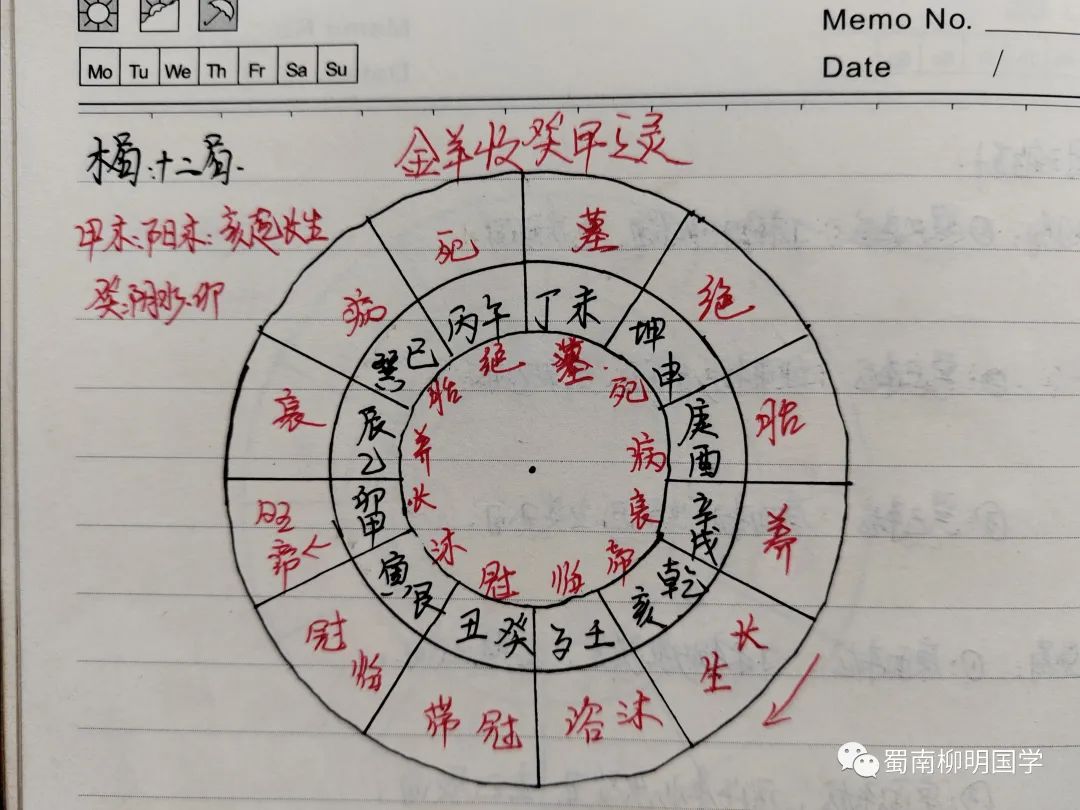 Memo No.
Date /
Mo Tu We Th Fr Sa Su
木局:十二局.
金羊收癸甲之灵
甲木:阳木:亥起长生
癸:阴水:卯
死
墓
绝
胎
养
长生
沐浴
冠带
临冠
帝旺
衰
病
丙午
丁未
坤申
庚酉
辛戌
乾亥
壬子
癸丑
艮寅
甲卯
乙辰
巳
绝
墓
死
病
衰
帝
临
冠
沐
长
养
胎
蜀南柳明国学